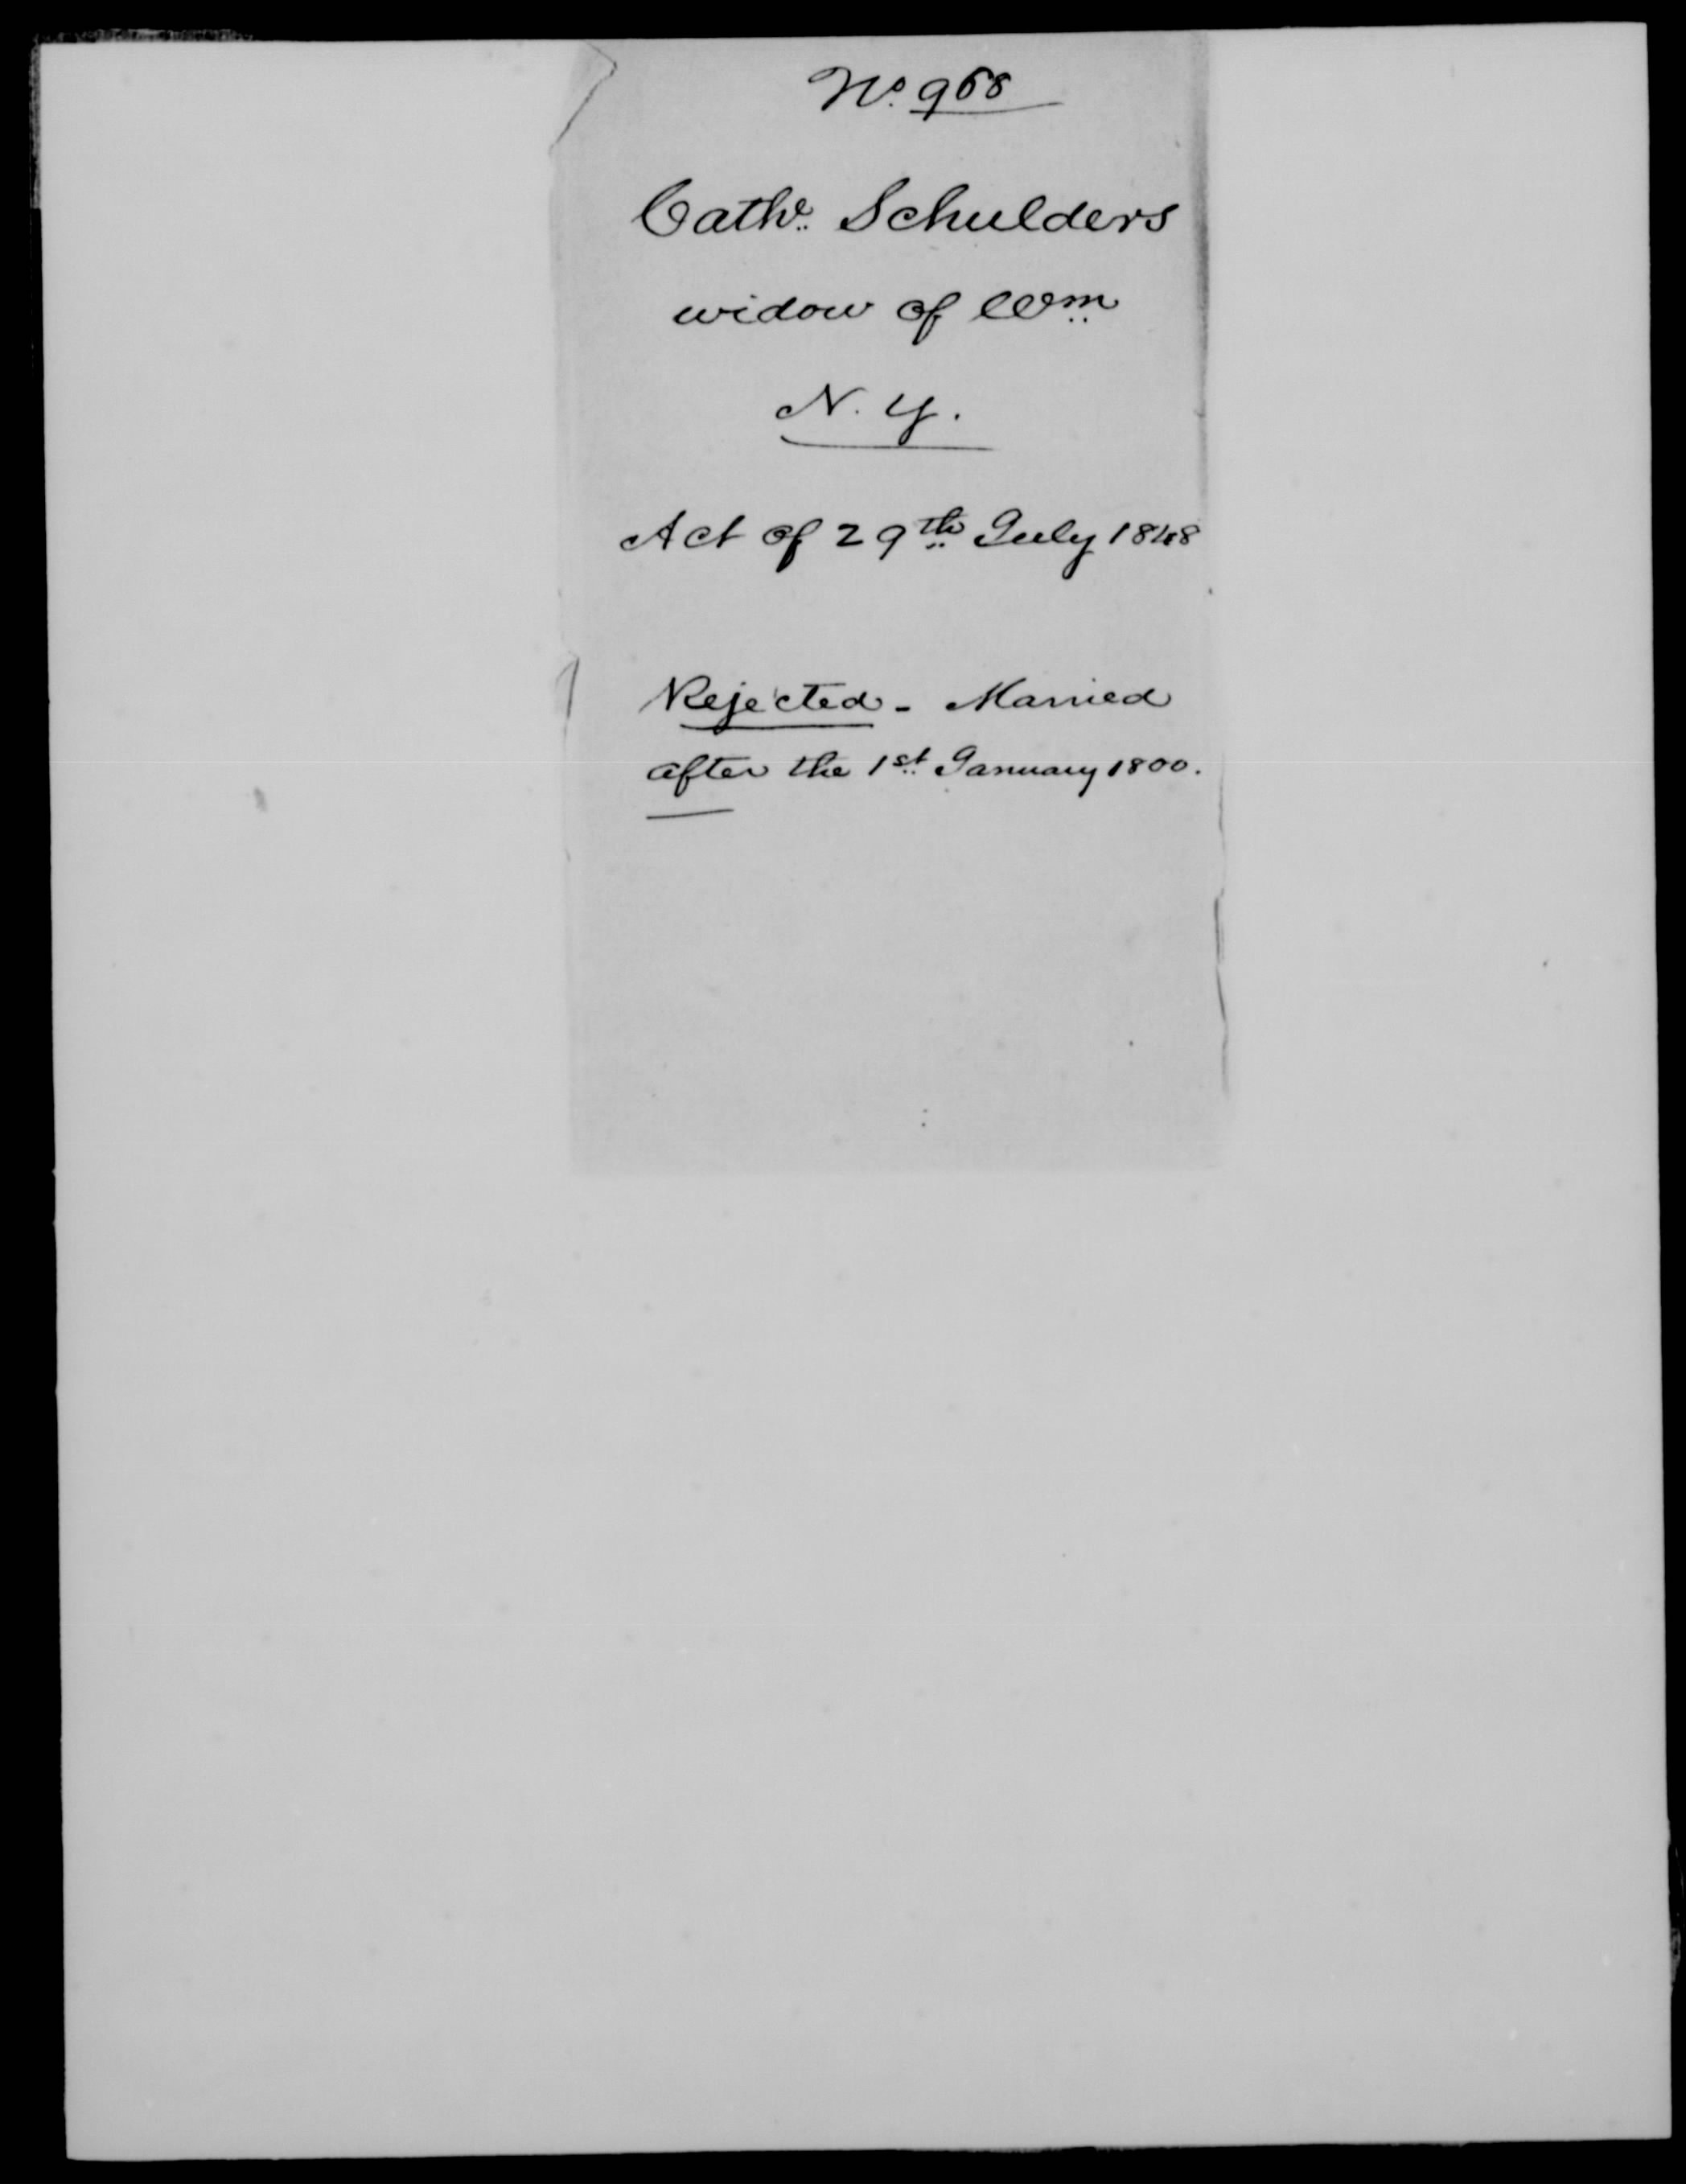 No. 968
Cathe. Schulders
widow of Wm
N. Y.
Act of 29th July 1848
Rejected - Married
after the 1st January 1800.